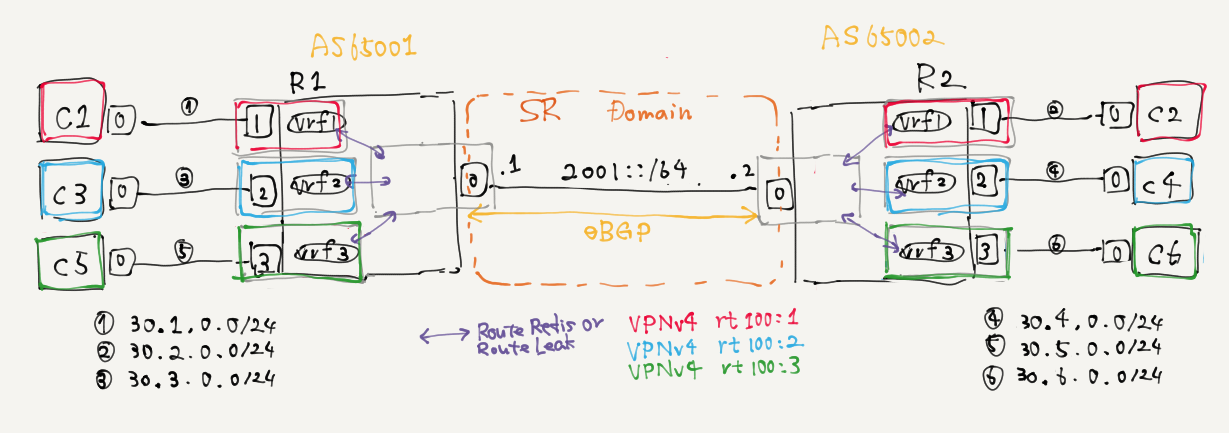 AS65001
AS65002
R1
R2
SR Domain
C1 0 ① 1 vrf1
vrf1 1 ② 0 C2
C3 0 ③ 2 vrf2
0 .1 2001::/64 .2 0
vrf2 2 ④ 0 C4
eBGP
C5 0 ⑤ 3 vrf3
vrf3 3 ⑥ 0 C6
① 30.1.0.0/24
② 30.2.0.0/24
③ 30.3.0.0/24
Route Redis or
Route Leak
VPNv4 rt 100:1
VPNv4 rt 100:2
VPNv4 rt 100:3
④ 30.4.0.0/24
⑤ 30.5.0.0/24
⑥ 30.6.0.0/24